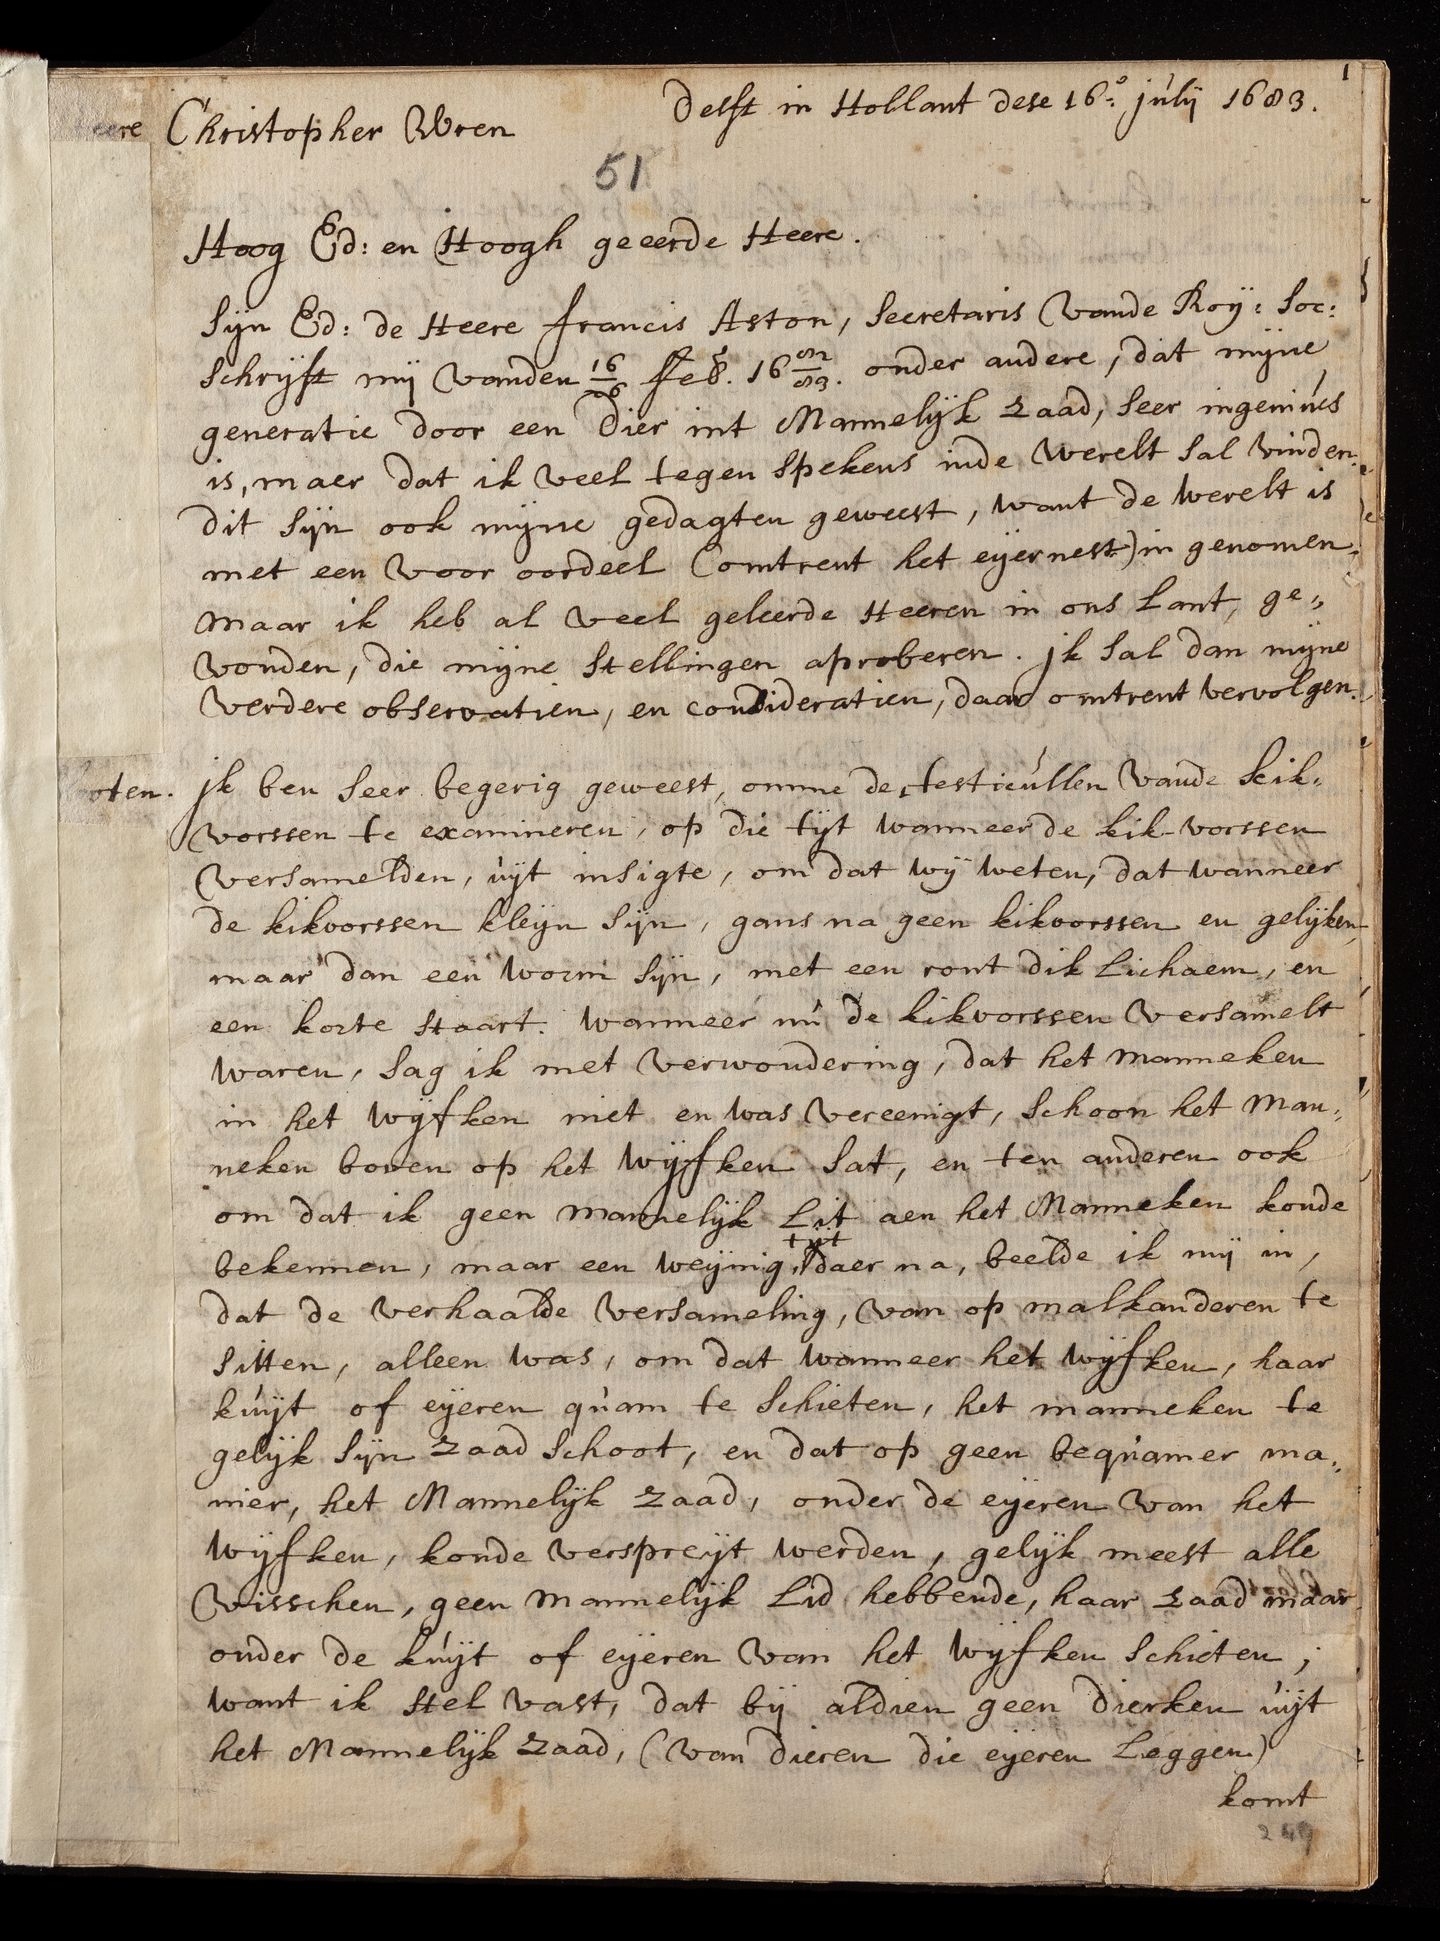 1
Delft in Hollant dese 16:e júlij 1683.
Heere Christopher Wren
51
Hoog Ed: en Hoogh geeerde Heere.
Sijn Ed: de Heere francis Aston, Secretaris vande Roij: Soc:
schrijft mij vanden 16/26 feb. 16 82/83. onder andere, dat mijne
generatie door een Dier int Mannelijk zaad, seer ingeniús
is, maer dat ik veel tegen spekens inde werelt sal vinden.
dit sijn ook mijne gedagten geweest, want de werelt is
met een voor oordeel (omtrent het eijernest) in genomen,
maar ik heb al veel geleerde Heeren in ons Lant, ge„
vonden, die mijne stellingen aproberen. jk sal dan mijne
verdere observatien, en consideratien, daar omtrent vervolgen.
kloten. jk ben seer begerig geweest, omme de testicúllen vande kik„
vorssen te examineren, op die tijt wanneer de kik-vorssen
versamelden, úijt insigte, om dat wij weten, dat wanneer
de kikvorssen kleijn sijn, gans na geen kikvorssen en gelijken,
maar dan een worm sijn, met een ront dik Lichaem, en
een korte staart. wanneer nú de kikvorssen versamelt
waren, sag ik met verwondering, dat het manneken
in het wijfken niet en was vereenigt, schoon het man„
neken boven op het wijfken sat, en ten anderen ook
om dat ik geen mannelijk Lit aen het Manneken konde
tijt
bekennen, maar een weijnig, daer na, beelde ik mij in,
dat de verhaalde versameling, van op malkanderen te
sitten, alleen was, om dat wanneer het wijfken, haar
kúijt of eijeren qúam te schieten, het manneken te
gelijk sijn zaad schoot, en dat op geen beqúamer ma„
nier, het Mannelijk zaad, onder de eijeren van het
wijfken, konde verspreijt werden, gelijk meest alle
visschen, geen mannelijk Lid hebbende, haar zaad maar
onder de kúijt of eijeren van het wijfken schieten;
want ik stel vast, dat bij aldien geen dierken úijt
het Mannelijk zaad, (van dieren die eijeren Leggen)
komt
249